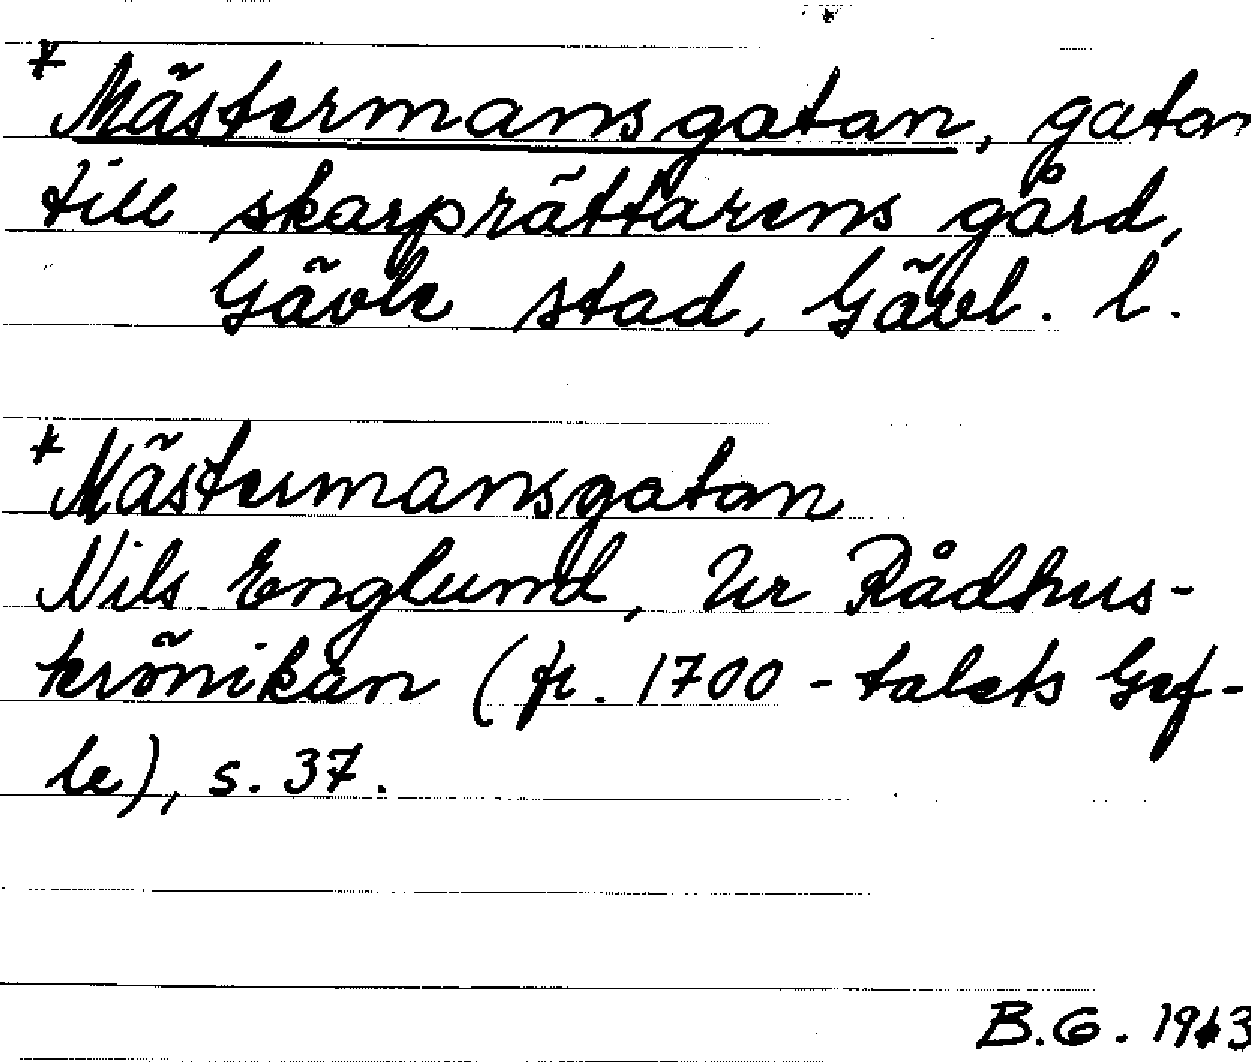 + Mästermansgatan, gatan
till skarprättarens gård,
Gävle stad, Gävl. l.
+ Mästermansgatan
Nils Englund, Ur Rådhus-
krönikan (fr. 1700-talets Gef-
le), s. 37.
B.G.